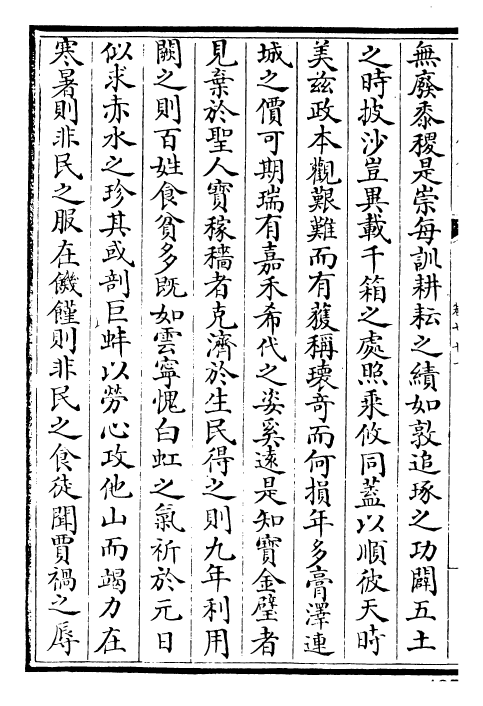 無廢黍稷是崇每訓耕耘之績如敦追琢之功闢五土
之時披沙豈異載千箱之處照乘攸同蓋以順彼天時
美兹政本觀艱難而有獲稱瓌奇而何損年多膏澤連
城之價可期瑞有嘉禾希代之姿奚遠是知寶金璧者
見棄於聖人寶稼穡者克濟於生民得之則九年利用
闕之則百姓食貧多既如雲寧愧白虹之氣祈於元日
似求赤水之珍其或剖巨蚌以勞心攻他山而竭力在
寒暑則非民之服在饑饉則非民之食徒聞賈禍之辱